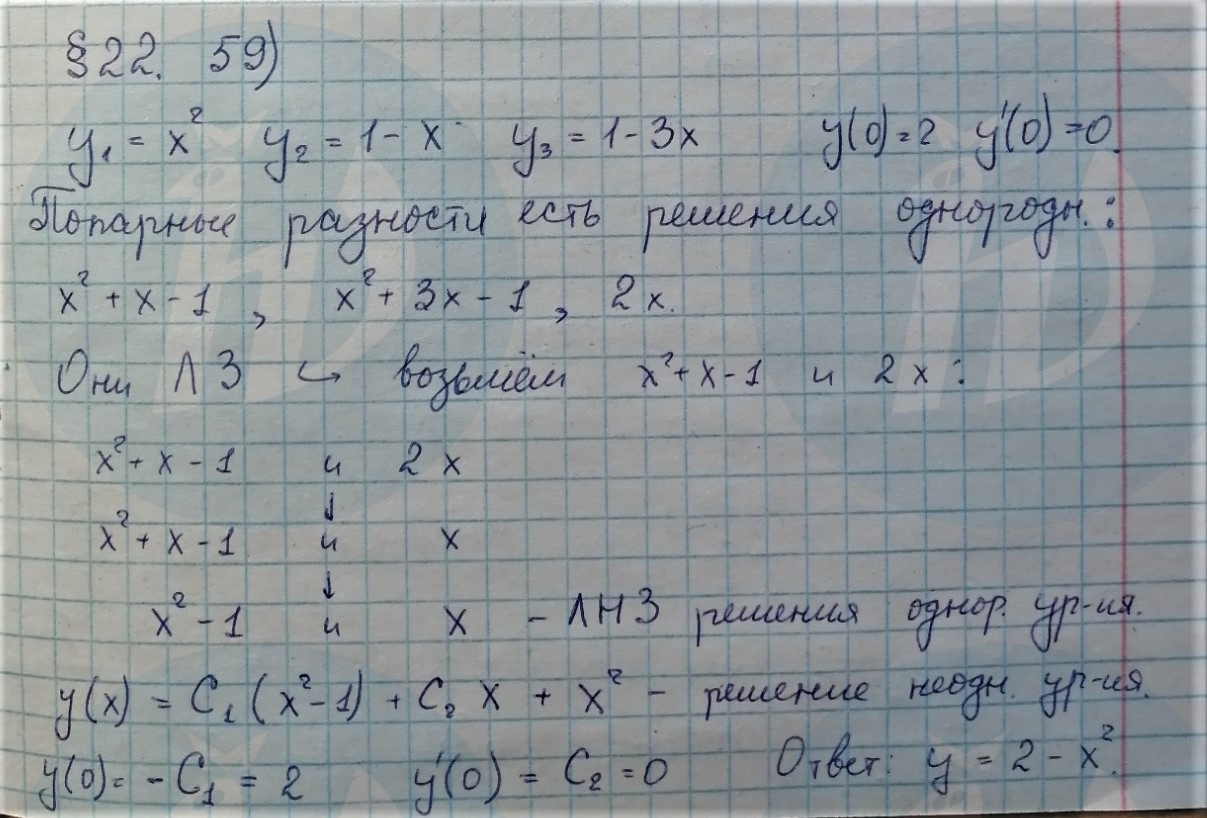 §22. 59)
y₁ = x² y₂ = 1 - x y₃ = 1 - 3x y(0) = 2 y'(0) = 0.
Попарные разности есть решения однородн.:
x² + x - 1 , x² + 3x - 1 , 2x.
Они ЛЗ ↪ возьмём x² + x - 1 и 2x :
x² + x - 1 и 2x
↓
x² + x - 1 и x
↓
x² - 1 и x - ЛНЗ решения однор. ур-ия.
y(x) = C₁(x² - 1) + C₂ x + x² - решение неодн. ур-ия.
y(0) = - C₁ = 2 y'(0) = C₂ = 0 Ответ: y = 2 - x².